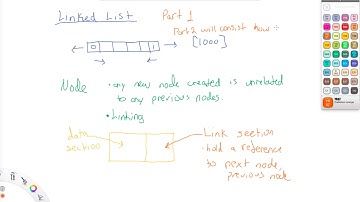 Linked List Part 1
Part 2 will consist how
[1000]
0 1
Node • any new node created is unrelated
to any previous nodes.
• Linking
data
section
Link section
• hold a reference
to next node,
previous node